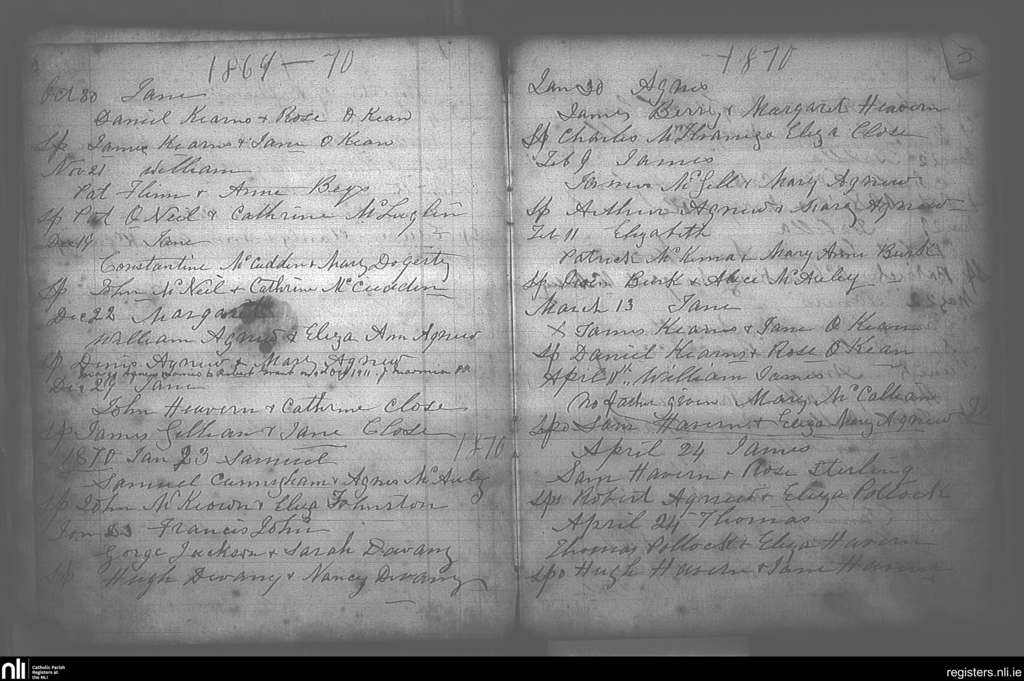 1869 – 70
Oct 30 Jane
Daniel Kearns & Rose O Kean
Sp James Kearns & Jane O Kean
Nov 21 William
Pat Flinn & Anne Begs
Sp Pat O Neil & Cathrine McLuglin
Dec 19 Jane
Constantine McCudden & Mary Dogerty
Sp John McNeil & Cathrine McCudden
Dec 22 Margaret
William Agnew & Eliza Ann Agnew
Sp Denis Agnew & Mary Agnew
Dec 29 Jane
John Heavern & Cathrine Close
Sp James Gillian & Jane Close
1870 Jan 23 Samuel 1870
Samuel Cunnigham & Agnes McAuley
Sp John McKeown & Eliza Johnston
Jan 23 Francis John
Gorge Jackson & Sarah Devany
Sp Hugh Devany & Nancy Devany
1870
Jan 30 Agnes
James Berry & Margaret Heavern
Sp Charles & Eliza Close
Feb 9 James
James McGill & Mary Agnew
Sp Arthur Agnew & Mary Agnew
Feb 11 Elizabeth
Patrick McKenna & Mary Anne Burk
Sp Owen Burk & Alyce McAuley
March 13 Jane
X James Kearns & Jane O Kean
Sp Daniel Kearns & Rose O Kean
April William James
No father given Mary McCallian
Spo Sam Havern & Eliza Mary Agnew
April 24 James
Sam Havern & Rose Sterling
Sps Robert Agnew & Eliza Pollock
April 24 Thomas
Thomas Pollock & Eliza Havern
Spo Hugh Havern & Jane
nli
Catholic Parish
Registers at
the NLI
registers.nli.ie